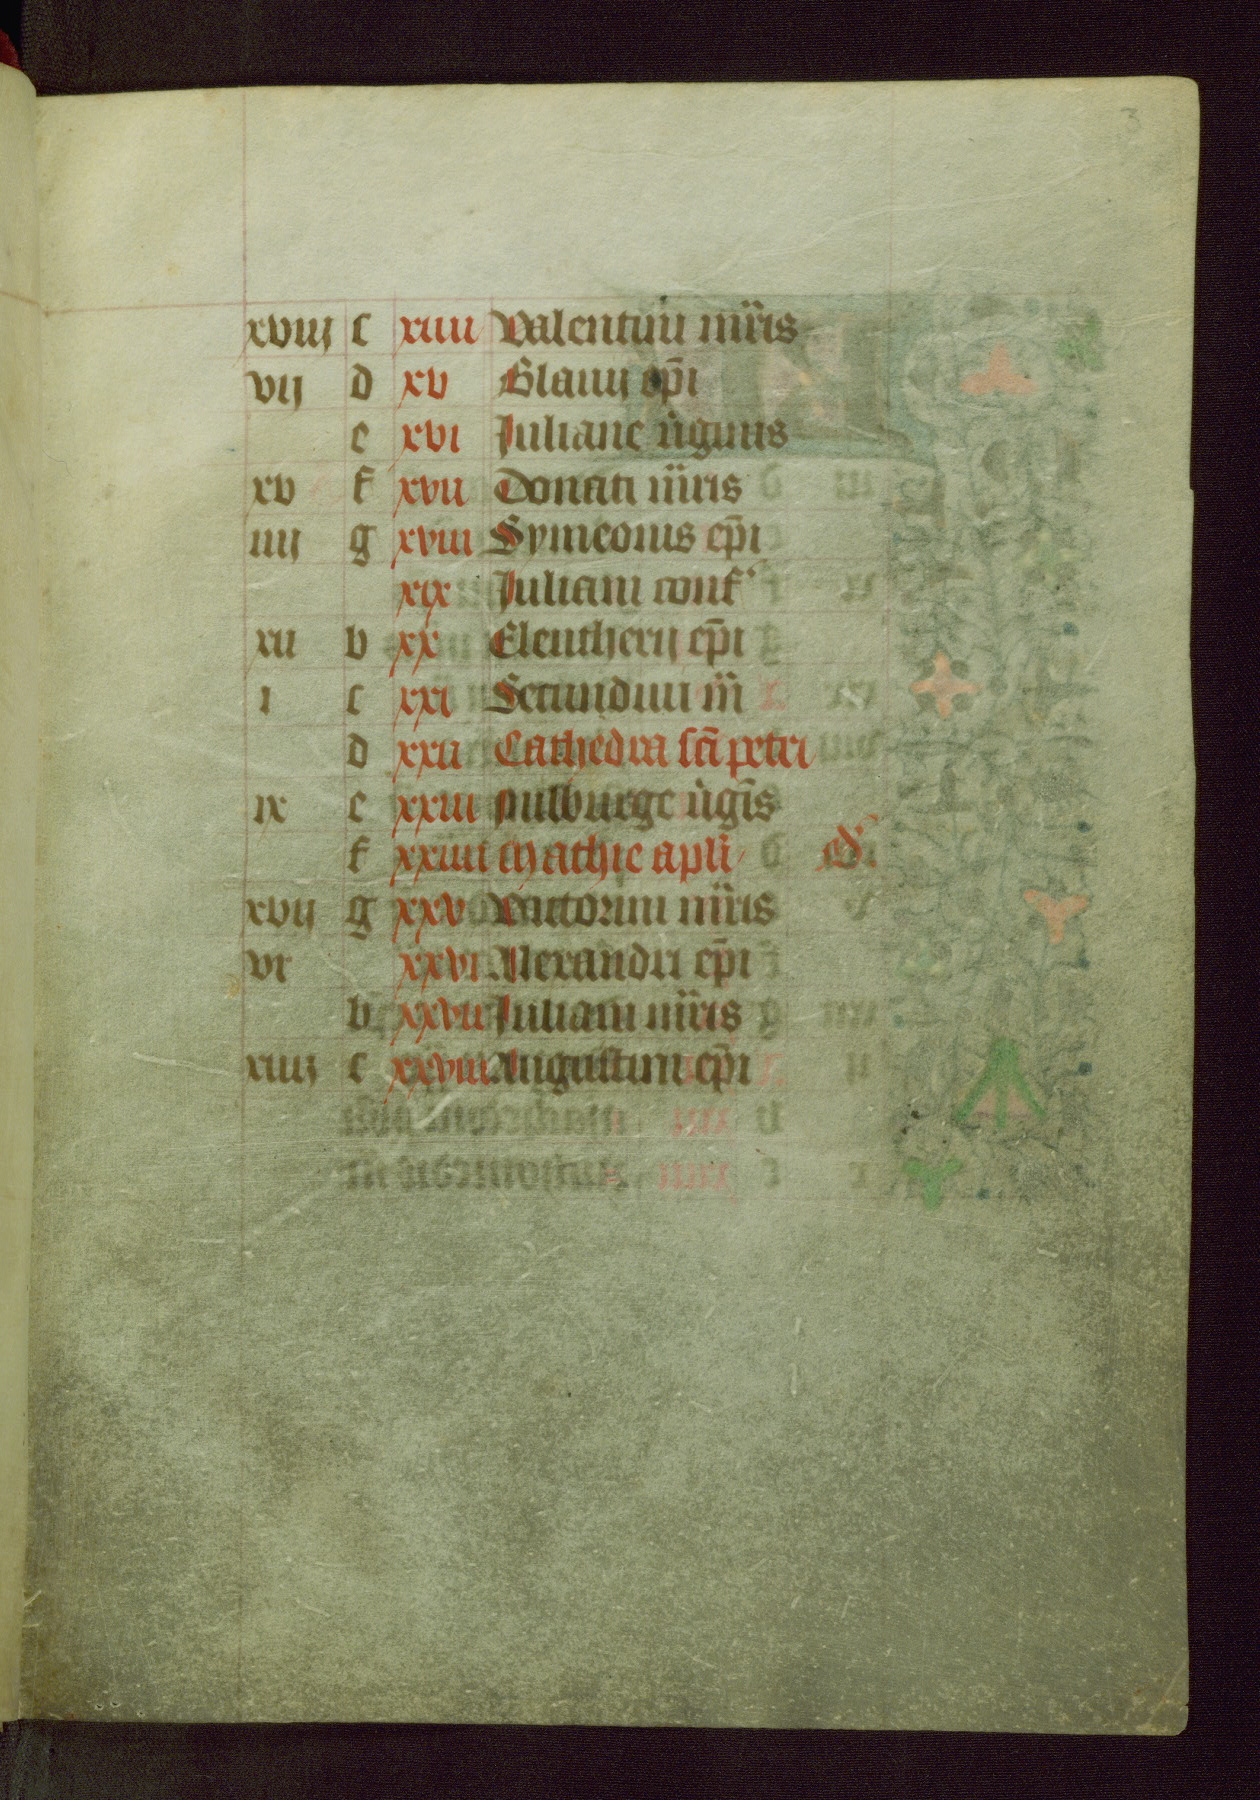 3
xviij c xiiii Valentini mr̄is
vij d xv Glauij ep̄i
e xvi Juliane v̇ginis
xv f xvii Donati mr̄is
iiij g xviii Symeonis ep̄i
xix Juliani conf᾽
xii b xx Eleutherij ep̄i
i c xxi Secundini m̄
d xxii Cathedra sc̄i petri
ix e xxiii milburge v̇gīs
f xxiiii Mathie apl̄i d᾽
xvij g xxv Victorini mr̄is
vi xxvi Alexandri ep̄i
b xxvii Juliani mr̄is
xiiij c xxviii Augustini ep̄i